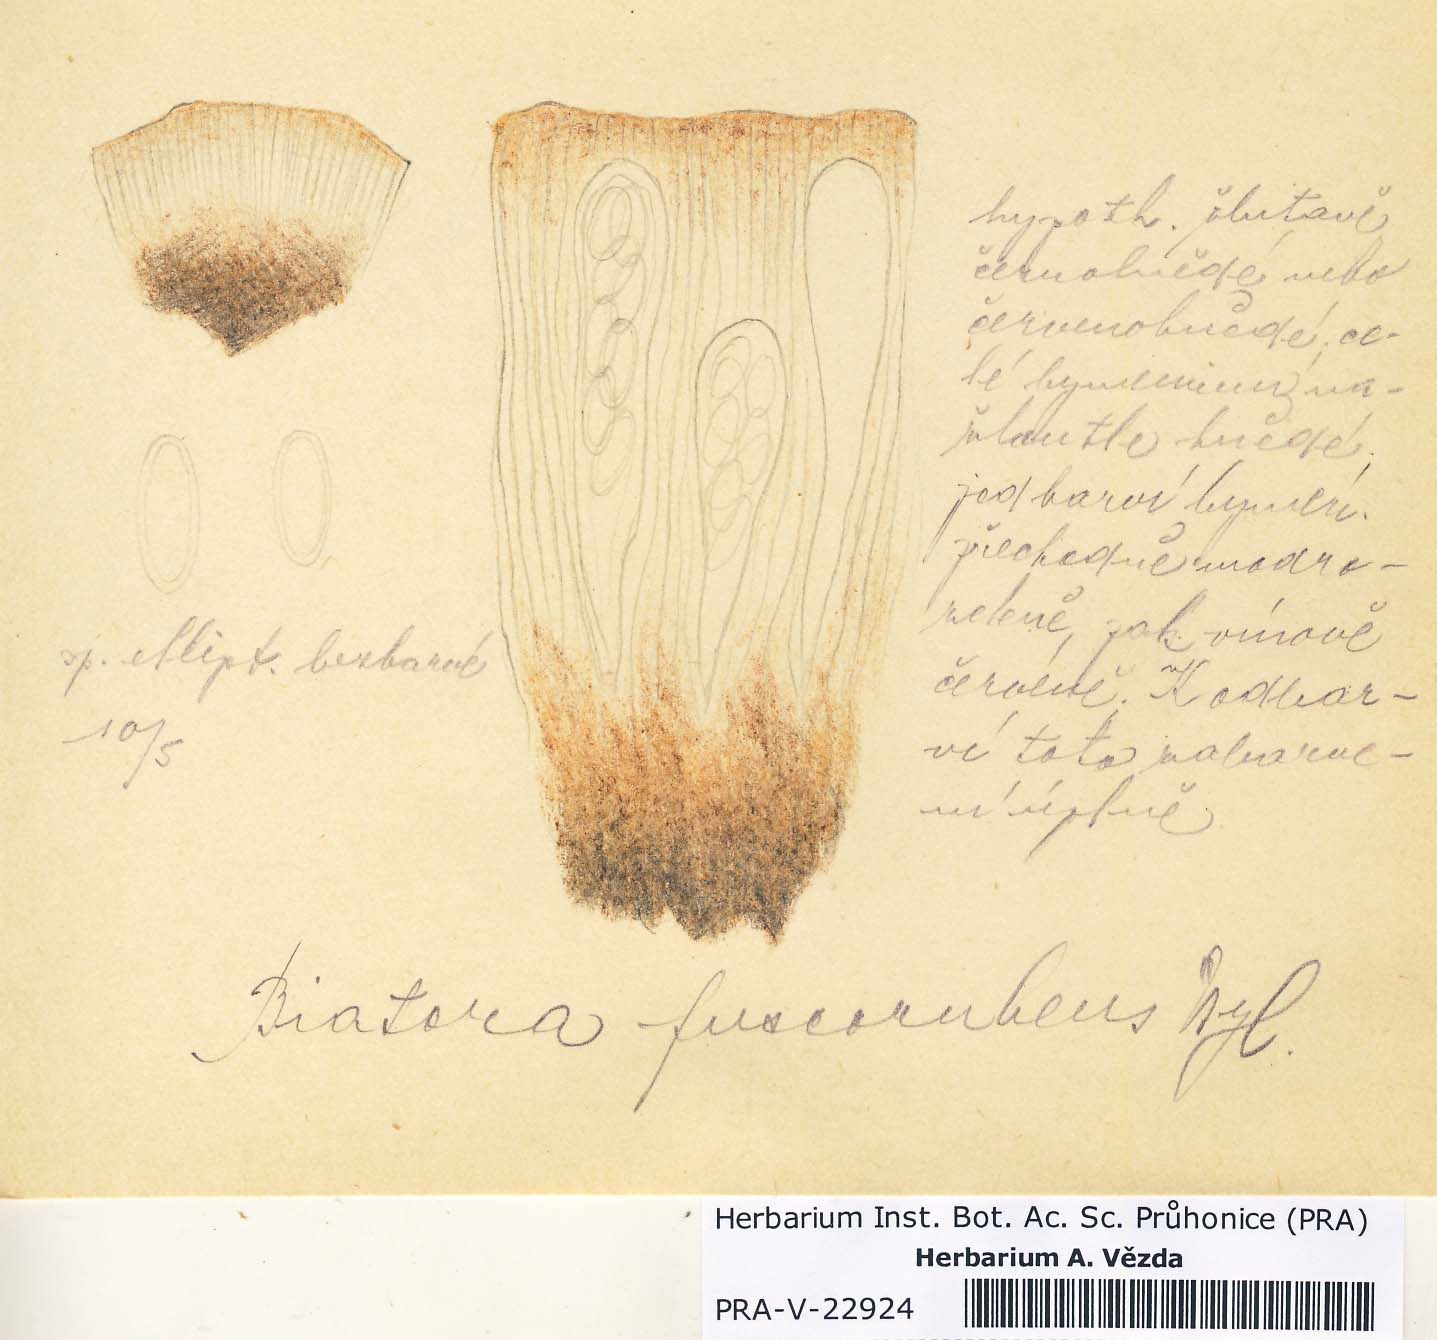 hypoth. žlutavě
černohnědé nebo
červenohnědé, ce-
lé hymenium na-
žloutle hnědé,
jod barví hymen.
přechodně modro-
zeleně, pak vínově
červeně. K odbar-
ví toto zabarve-
ní úplně
sp. ellipt. bezbarvé
10/5
Biatora fuscorubens Nyl.
Herbarium Inst. Bot. Ac. Sc. Průhonice (PRA)
Herbarium A. Vězda
PRA-V-22924